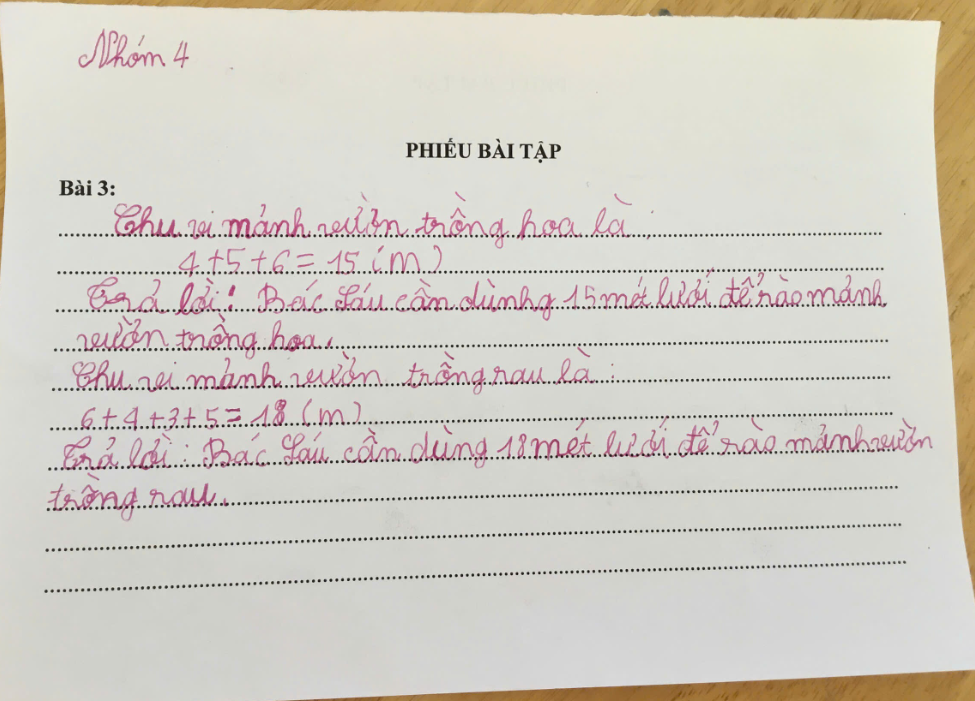 Nhóm 4
PHIẾU BÀI TẬP
Bài 3:
Chu vi mảnh vườn trồng hoa là:
4 + 5 + 6 = 15 (m)
Trả lời: Bác Sáu cần dùnhg 15 mét lưới để rào mảnh
vườn trồng hoa.
Chu vi mảnh vườn trồng rau là:
6 + 4 + 3 + 5 = 18 (m)
Trả lời: Bác Sáu cần dùng 18 mét lưới để rào mảnh vườn
trồng rau.